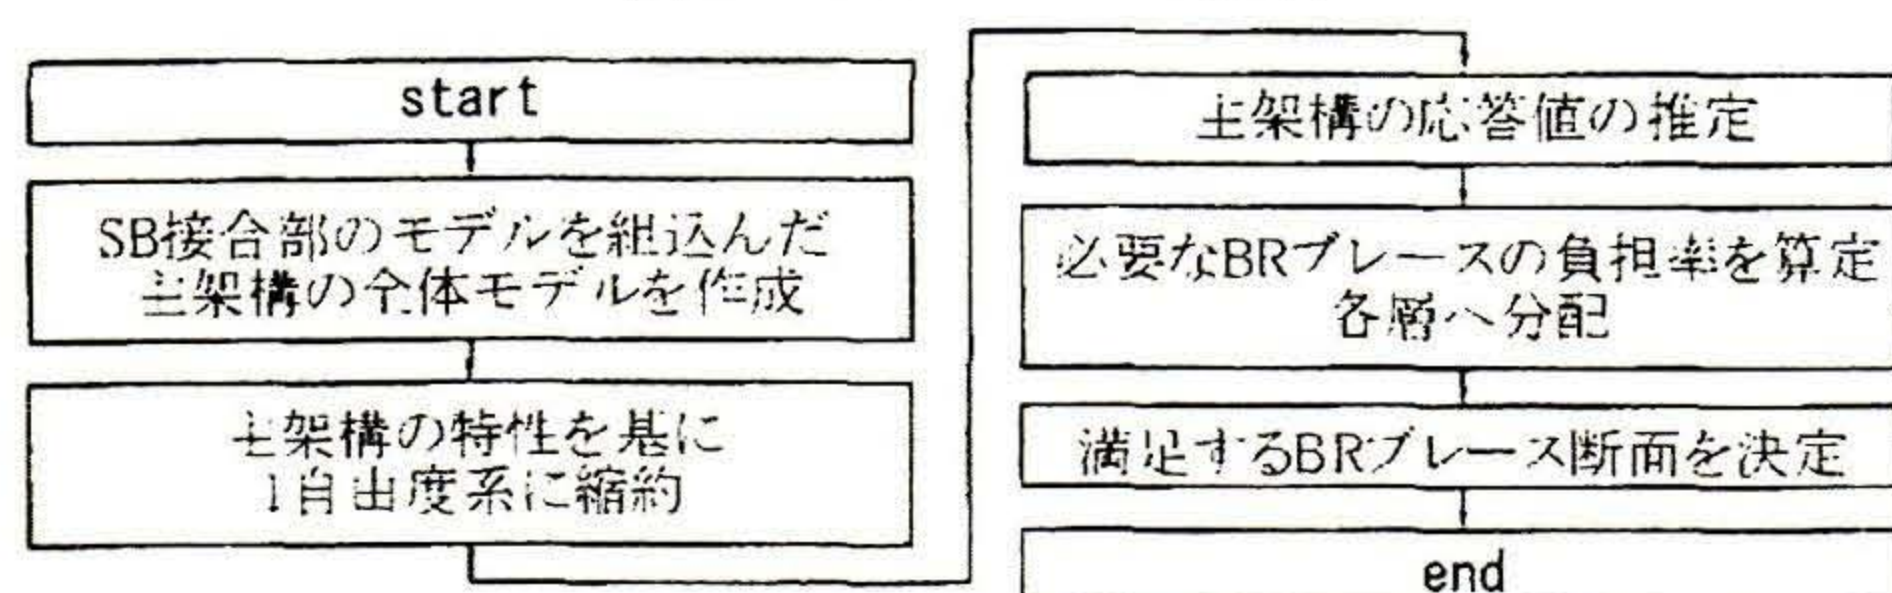 start
SB接合部のモデルを組込んだ
主架構の全体モデルを作成
主架構の特性を基に
1自由度系に縮約
主架構の応答値の推定
必要なBRブレースの負担率を算定
各層へ分配
満足するBRブレース断面を決定
end